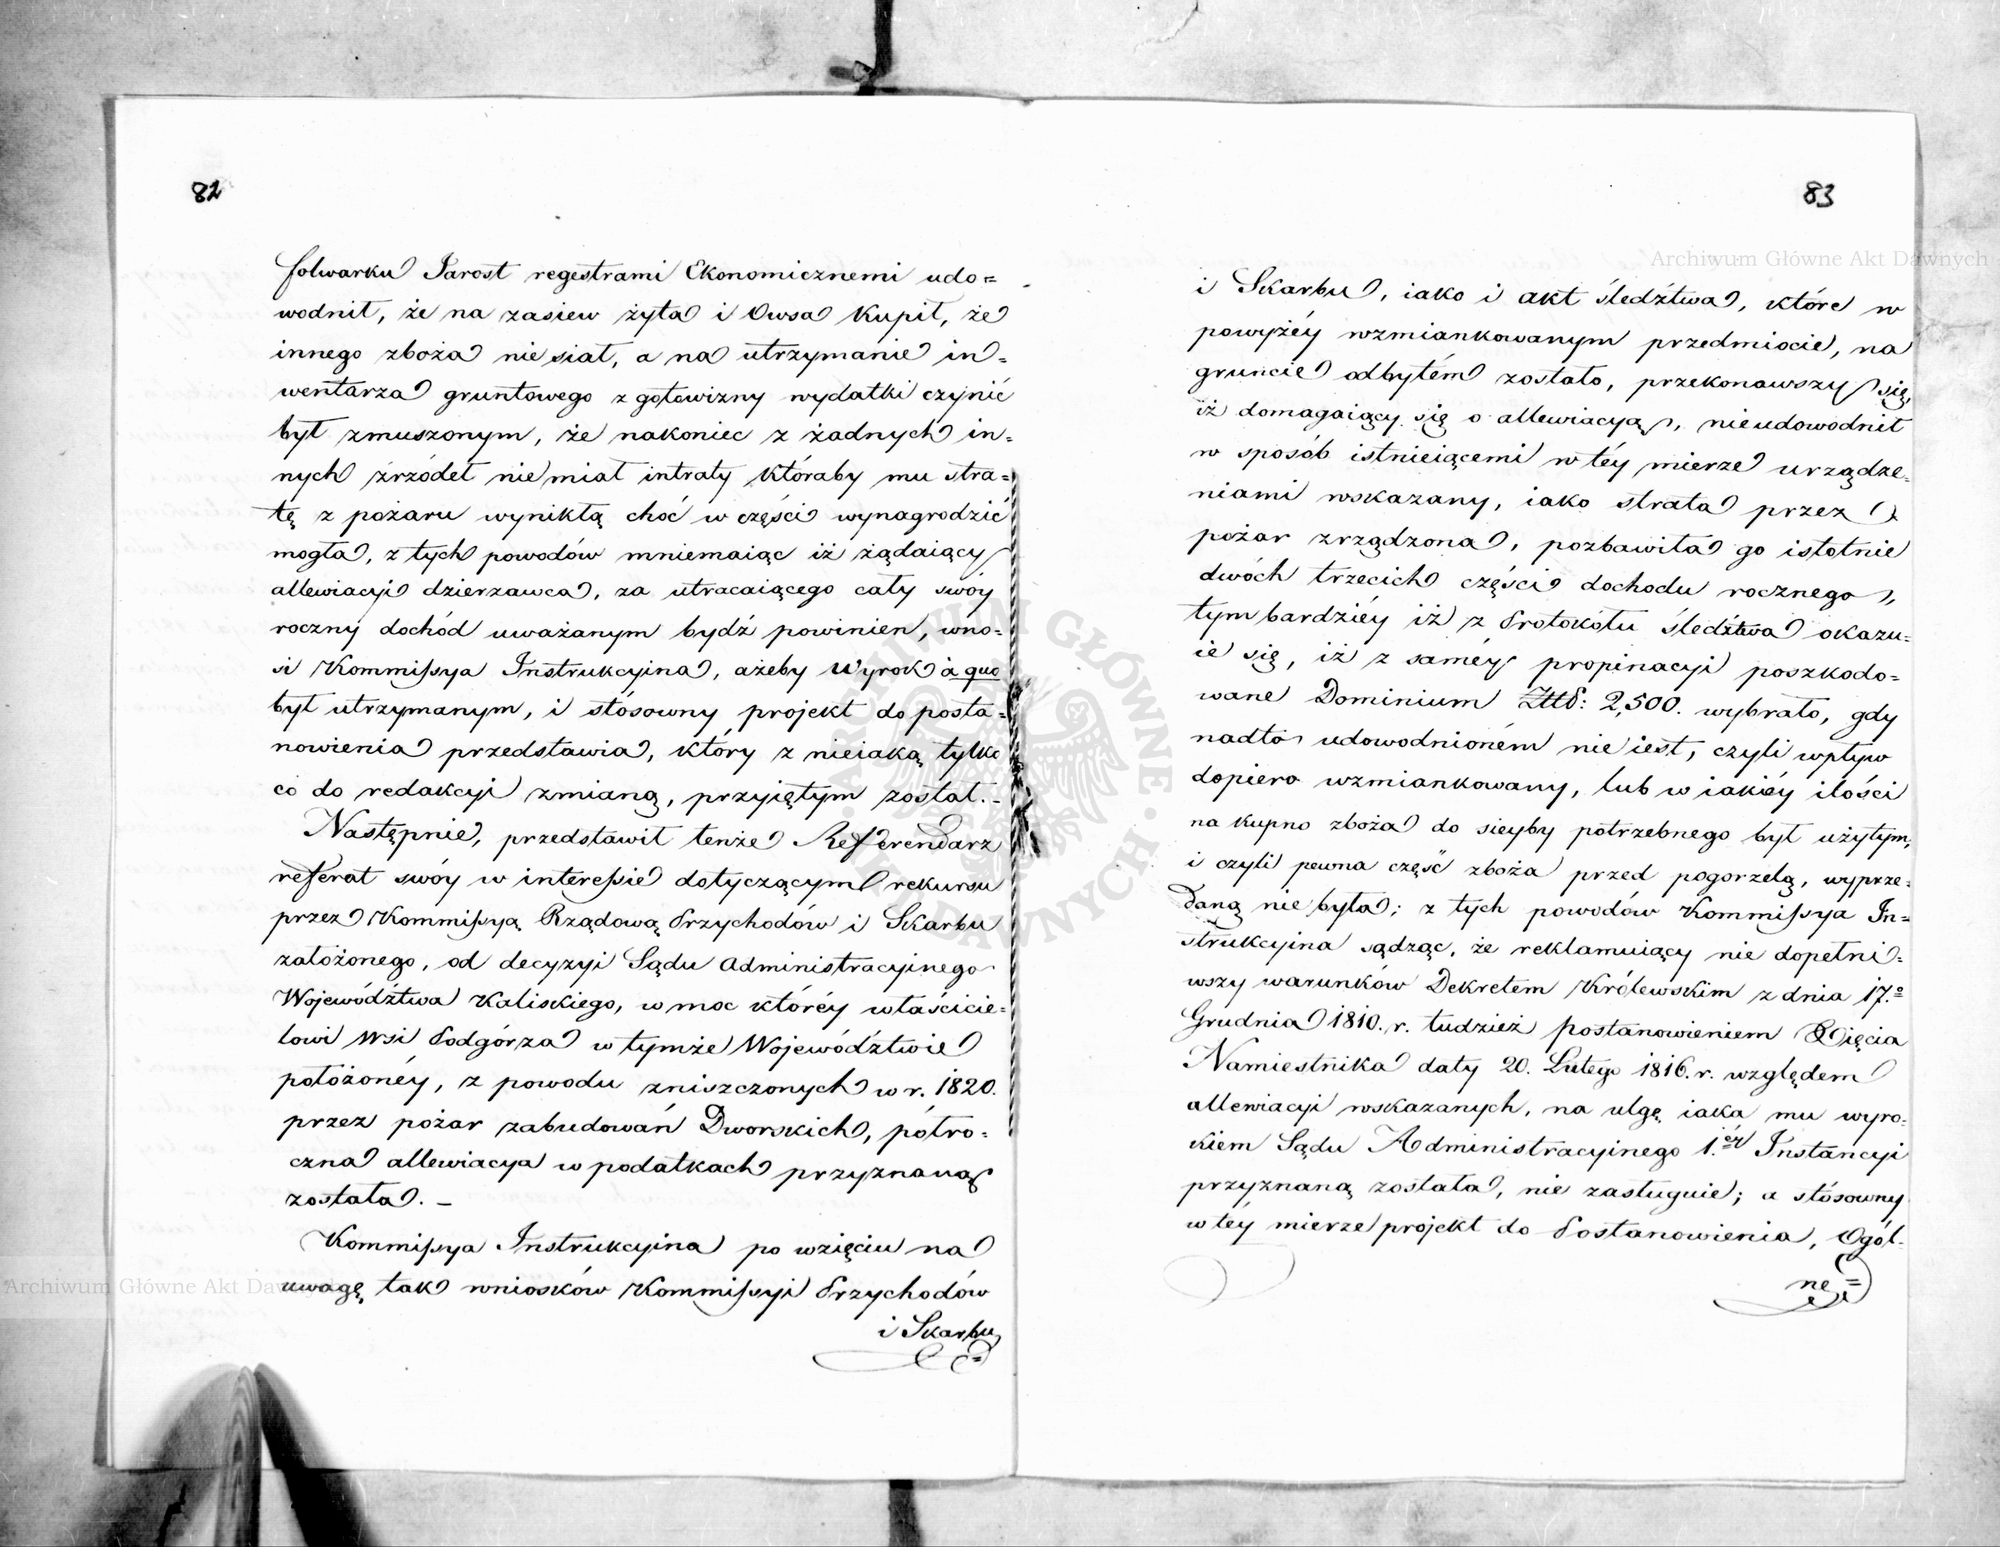 82
folwarku Jarost regestrami Ekonomicznemi udo=
wodnił, że na zasiew żyta i Owsa kupił, że
innego zboża nie siał, a na utrzymanie in=
wentarza gruntowego z gotowizny wydatki czynić
był zmuszonym, że nakoniec z żadnych in=
nych źrzódeł nie miał intraty któraby mu stra=
tę z pożaru wynikłą choć w części wynagrodzić
mogła, z tych powodów mniemaiąc iż żądaiący
allewiacyi dzierzawca, za utracaiącego cały swóy
roczny dochód uważanym bydź powinien, wno=
si Kommissya Instrukcyina, ażeby Wyrok à quo
był utrzymanym, i stósowny projekt do posta=
nowienia przedstawia, który z nieiaką tylko
co do redakcyi zmianą, przyiętym został. -
Następnie, przedstawił tenże Referendarz
referat swóy w interessie dotyczącym rekursu
przez Kommissyą Rządową Przychodów i Skarbu
założonego, od decyzyi Sądu Administracyinego
Województwa Kaliskiego, w moc któréy właścicie=
lowi Wsi Podgórza w tymże Województwie
położonéy, z powodu zniszczonych w r. 1820.
przez pożar zabudowań Dworskich, półro=
czna allewiacya w podatkach przyznaną
została. -
Kommissya Instrukcyina po wzięciu na
uwagę tak wniosków Kommissyi Przychodów
i Skarbu
83
i Skarbu, iako i akt śledźtwa, które w
powyżéy wzmiankowanym przedmiocie, na
gruncie odbytém zostało, przekonawszy się,
iż domagaiący się o allewiacyą, nieudowodnił
w sposób istnieiącemi w téy mierze urządze=
niami wskazany, iako strata przez
pożar zrządzona, pozbawiła go istotnie
dwóch trzecich części dochodu rocznego,
tym bardziéy iż z Protokółu śledźtwa okazu=
ie się, iż z saméy propinacyi poszkodo=
wane Dominium Złtp: 2,500. wybrało, gdy
nadto udowodnioném nie iest, czyli wpływ
dopiero wzmiankowany, lub w iakiéy ilości
na kupno zboża do sieyby potrzebnego był użytym,
i czyli pewna część zboża przed pogorzelą, wyprze=
daną nie była; z tych powodów Kommissya In=
strukcyina sądząc, że reklamuiący nie dopełni=
wszy warunków Dekretem Królewskim z dnia 17.º
Grudnia 1810. r. tudzież postanowieniem Xięcia
Namiestnika daty 20. Lutego 1816. r. względem
allewiacyi wskazanych, na ulgę iaka mu wyro=
kiem Sądu Administracyinego 1.éy Instancyi
przyznaną została, nie zasługuie; a stósowny
w téy mierze projekt do Postanowienia, Ogól=
ne=
Archiwum Główne Akt Dawnych
Archiwum Główne Akt Dawnych
ARCHIWUM GŁÓWNE AKT DAWNYCH